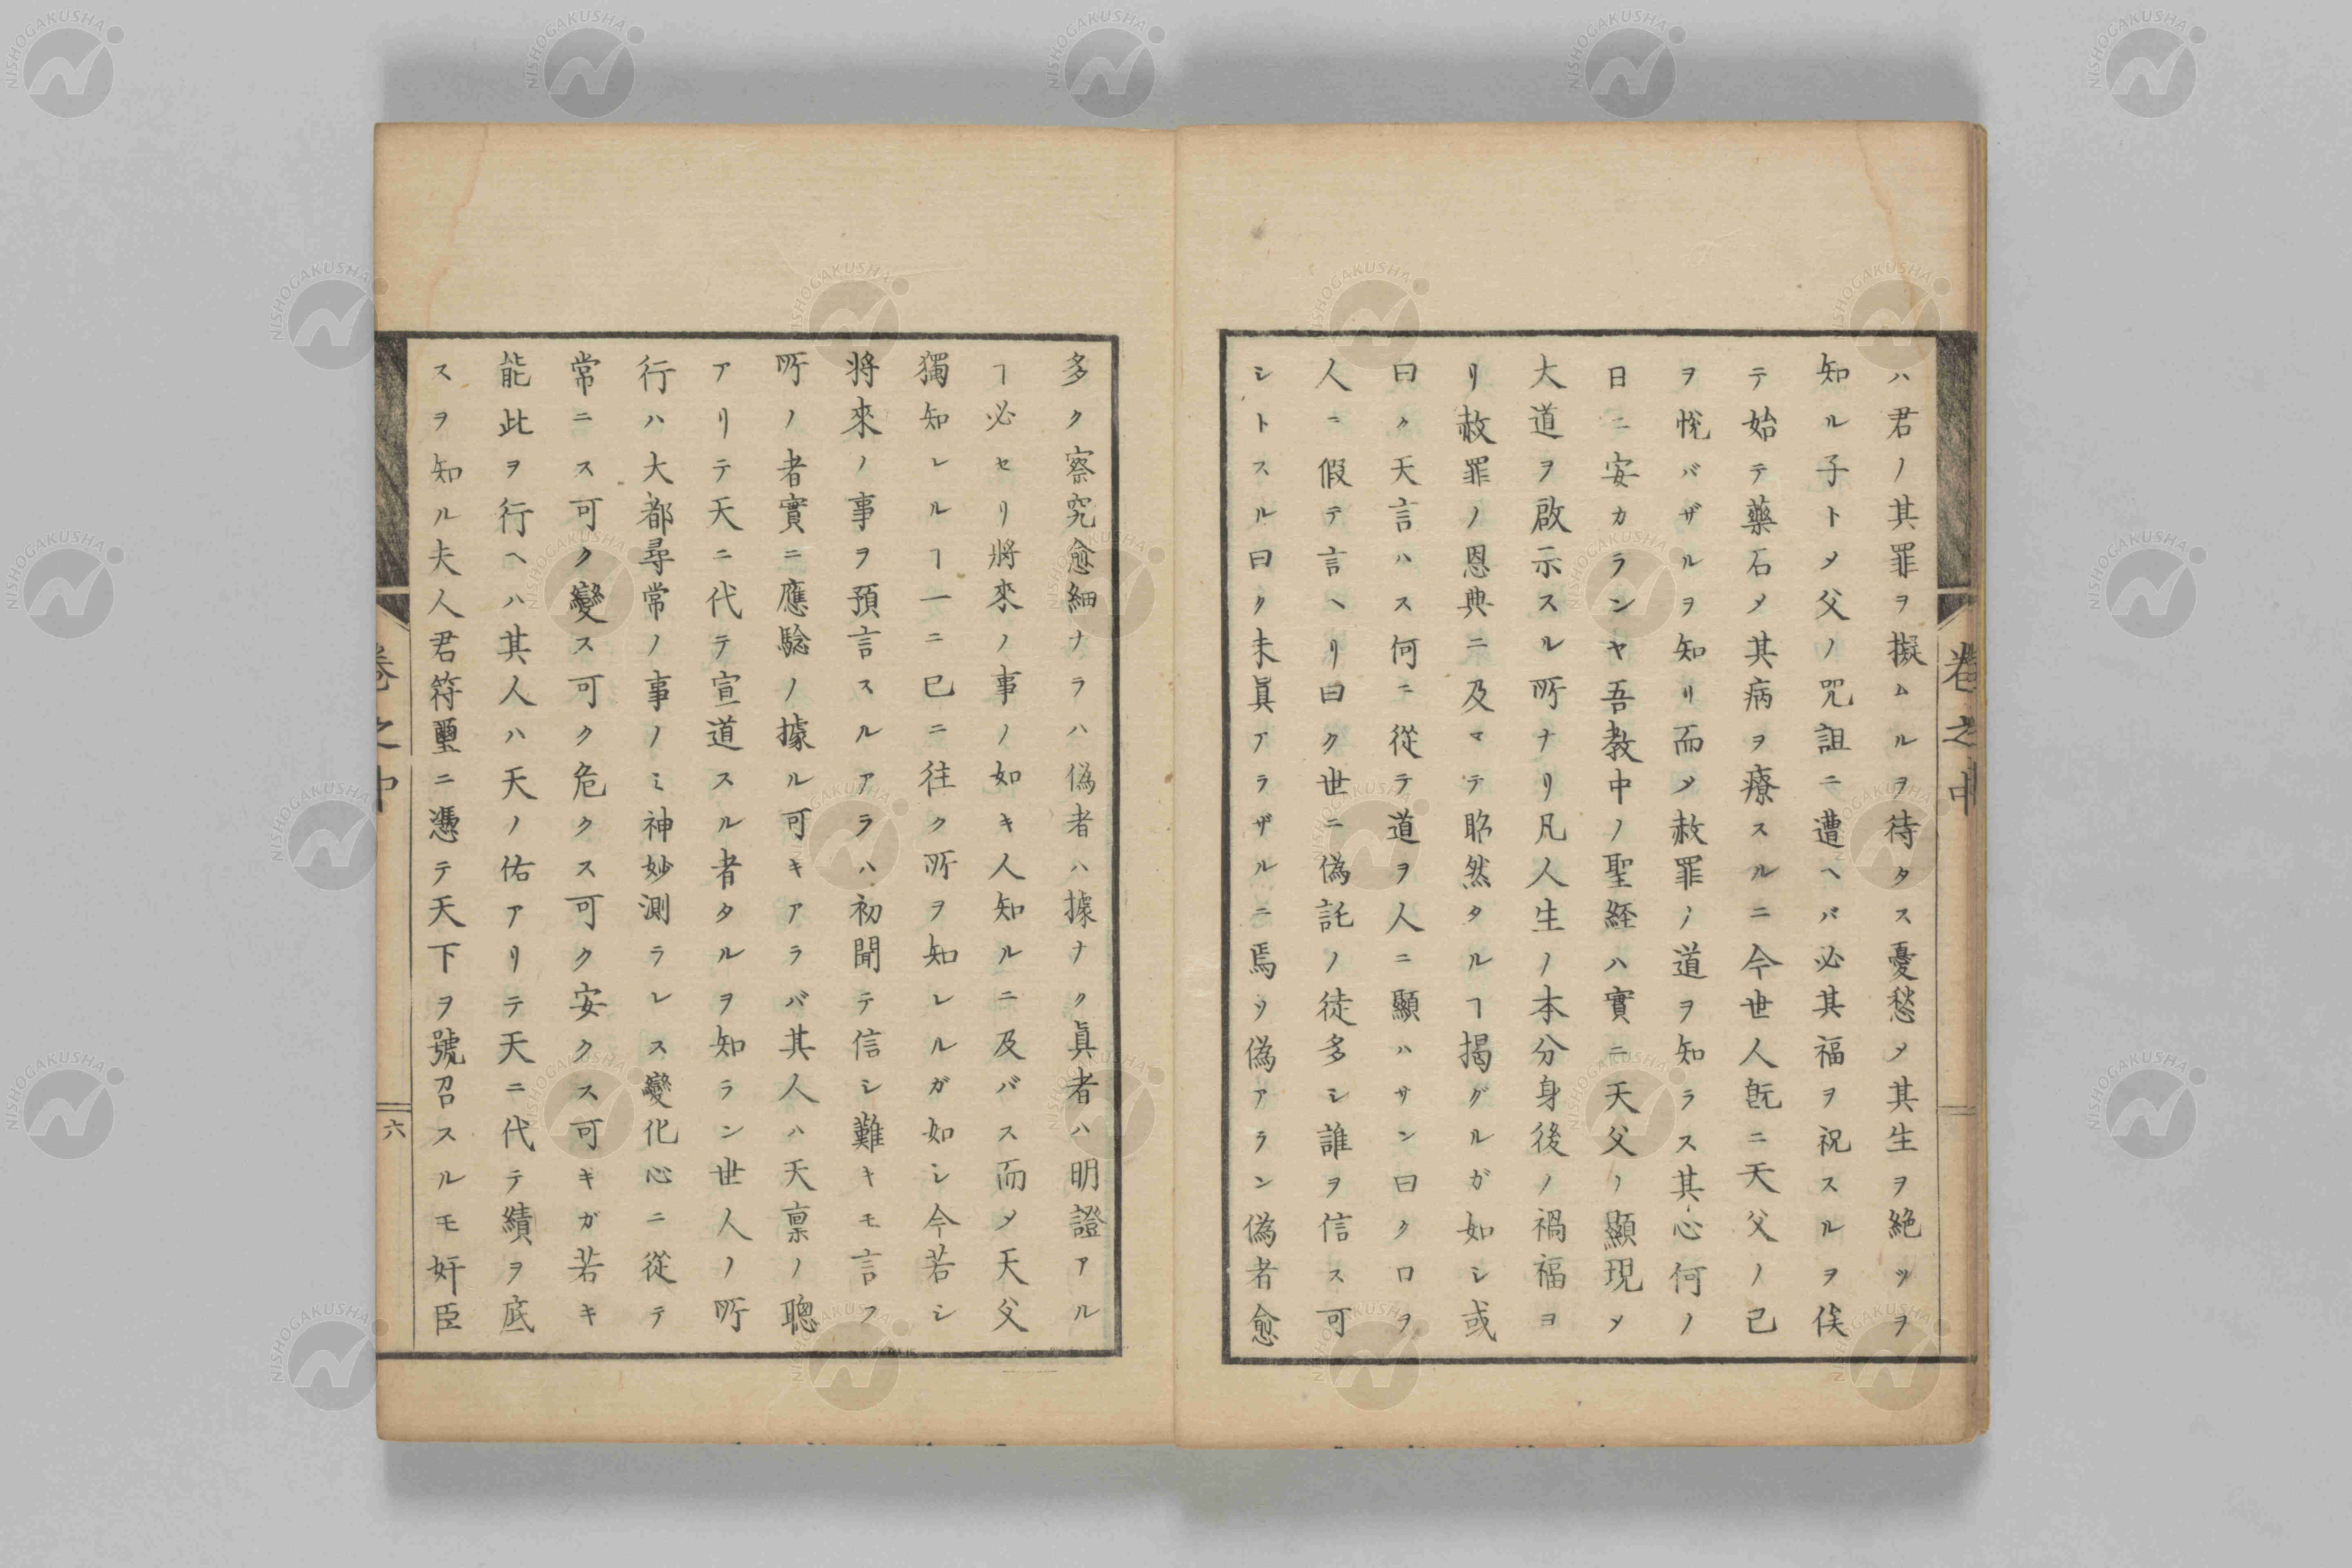 ハ君ノ其罪ヲ擬ムルヲ待タス憂愁メ其生ヲ絶ツヲ
知ル子トメ父ノ咒詛ニ遭ヘバ必其福ヲ祝スルヲ俟
テ始テ藥石メ其病ヲ療スルニ今世人既ニ天父ノ己
ヲ悅バザルヲ知リ而メ赦罪ノ道ヲ知ラス其心何ノ
日ニ安カランヤ吾教中ノ聖経ハ實ニ天父ノ顯現メ
大道ヲ啟示スル所ナリ凡人生ノ本分身後ノ禍福ヨ
リ赦罪ノ恩典ニ及マテ昭然タルヿ揭グルガ如シ或
曰ク天言ハス何ニ從テ道ヲ人ニ顯ハサン曰ク口ヲ
人ニ假テ言ヘリ曰ク世ニ偽託ノ徒多シ誰ヲ信ス可
シトスル曰ク未眞アラザルニ焉ソ偽アラン偽者愈
多ク察究愈細ナラハ偽者ハ據ナク眞者ハ明證アル
ヿ必セリ將來ノ事ノ如キ人知ルニ及バス而メ天父
獨知レルヿ一ニ已ニ往ク所ヲ知レルガ如シ今若シ
將來ノ事ヲ預言スルアラハ初聞テ信シ難キモ言フ
所ノ者實ニ應驗ノ據ル可キアラバ其人ハ天稟ノ聰
アリテ天ニ代テ宣道スル者タルヲ知ラン世人ノ所
行ハ大都尋常ノ事ノミ神妙測ラレス變化心ニ從テ
常ニス可ク變ス可ク危クス可ク安クス可キガ若キ
能此ヲ行ヘハ其人ハ天ノ佑アリテ天ニ代テ績ヲ底
スヲ知ル夫人君符璽ニ憑テ天下ヲ號召スルモ奸臣
卷之中
六
卷之中
NISHOGAKUSHA